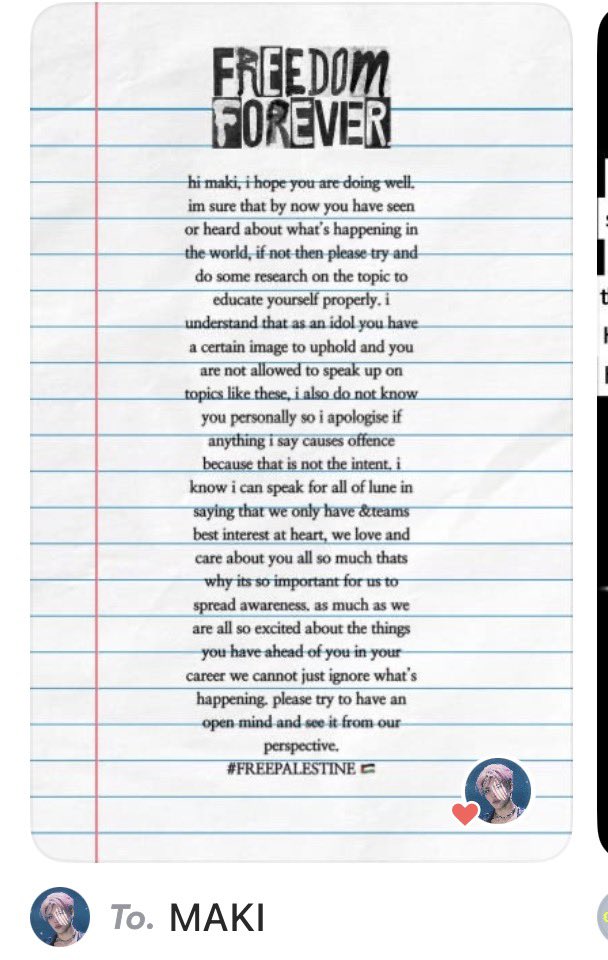 FREEDOM
FOREVER
hi maki, i hope you are doing well.
im sure that by now you have seen
or heard about what's happening in
the world, if not then please try and
do some research on the topic to
educate yourself properly. i
understand that as an idol you have
a certain image to uphold and you
are not allowed to speak up on
topics like these, i also do not know
you personally so i apologise if
anything i say causes offence
because that is not the intent. i
know i can speak for all of lune in
saying that we only have &teams
best interest at heart, we love and
care about you all so much thats
why its so important for us to
spread awareness. as much as we
are all so excited about the things
you have ahead of you in your
career we cannot just ignore what's
happening. please try to have an
open mind and see it from our
perspective.
#FREEPALESTINE 🇵🇸
To. MAKI